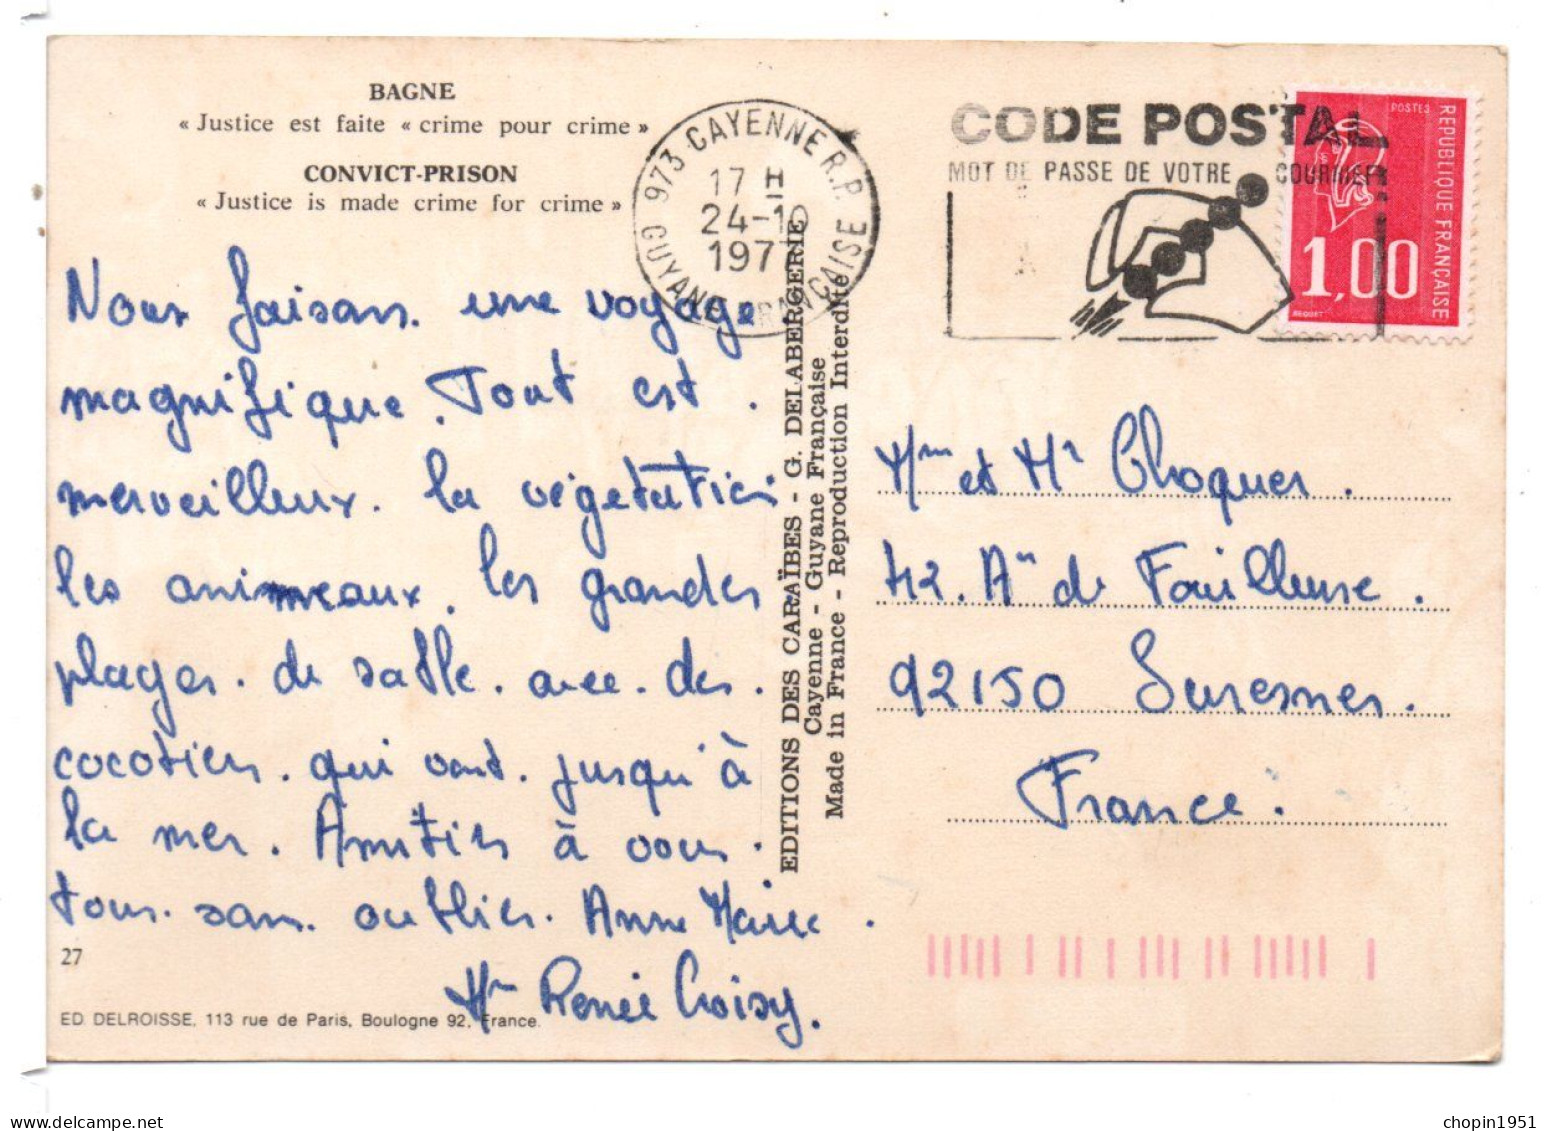 BAGNE
« Justice est faite « crime pour crime »
CONVICT-PRISON
« Justice is made crime for crime »
Nous faisons une voyage
magnifique. Tout est.
merveilleux. la végétation
les animeaux. les grandes
plages. de sable. avec. des.
cocotiers. qui vont. jusqu'à
la mer. Amitiés à vous.
tous. sans. oublier. Anne Marie.
Mme Renée Croisy.
27
ED. DELROISSE, 113 rue de Paris, Boulogne 92, France.
EDITIONS DES CARAÏBES - G. DELABERGERIE
Cayenne - Guyane Française
Made in France - Reproduction Interdite
973 CAYENNE R.P.
17 H
24-10
197
GUYANE FRANÇAISE
CODE POSTAL
MOT DE PASSE DE VOTRE COURRIER
POSTES
REPUBLIQUE FRANÇAISE
1,00
BEQUET
Mme et Mr Choquer.
42. Aue de Fouilleuse.
92150 Suresnes.
France.
chopin1951